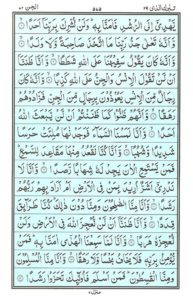 تبٰرك الذی ٢٩ ٥٤٥ الجن ٧٢
يَّهْدِيْٓ اِلَى الرُّشْدِ فَاٰمَنَّا بِهٖ ؕ وَلَنْ نُّشْرِكَ بِرَبِّنَاۤ اَحَدًا
وَّاَنَّهٗ تَعٰلٰى جَدُّ رَبِّنَا مَا اتَّخَذَ صَاحِبَةً وَّلَا وَلَدًا
وَّاَنَّهٗ كَانَ يَقُوْلُ سَفِيْهُنَا عَلَى اللّٰهِ شَطَطًا وَّاَنَّا ظَنَنَّاۤ
اَنْ لَّنْ تَقُوْلَ الْاِنْسُ وَالْجِنُّ عَلَى اللّٰهِ كَذِبًا وَّاَنَّهٗ كَانَ
رِجَالٌ مِّنَ الْاِنْسِ يَعُوْذُوْنَ بِرِجَالٍ مِّنَ الْجِنِّ فَزَادُوْهُمْ
رَهَقًا وَّاَنَّهُمْ ظَنُّوْا كَمَا ظَنَنْتُمْ اَنْ لَّنْ يَّبْعَثَ اللّٰهُ اَحَدًا
وَّاَنَّا لَمَسْنَا السَّمَآءَ فَوَجَدْنٰهَا مُلِئَتْ حَرَسًا
شَدِيْدًا وَّشُهُبًا وَّاَنَّا كُنَّا نَقْعُدُ مِنْهَا مَقَاعِدَ لِلسَّمْعِ ؕ
فَمَنْ يَّسْتَمِعِ الْاٰنَ يَجِدْ لَهٗ شِهَابًا رَّصَدًا وَّاَنَّا لَا
نَدْرِيْٓ اَشَرٌّ اُرِيْدَ بِمَنْ فِي الْاَرْضِ اَمْ اَرَادَ بِهِمْ رَبُّهُمْ
رَشَدًا وَّاَنَّا مِنَّا الصّٰلِحُوْنَ وَمِنَّا دُوْنَ ذٰلِكَ ؕ كُنَّا طَرَآئِقَ
قِدَدًا وَّاَنَّا ظَنَنَّاۤ اَنْ لَّنْ نُّعْجِزَ اللّٰهَ فِي الْاَرْضِ وَلَنْ
نُّعْجِزَهٗ هَرَبًا وَّاَنَّا لَمَّا سَمِعْنَا الْهُدٰۤى اٰمَنَّا بِهٖ ؕ فَمَنْ
يُّؤْمِنْۢ بِرَبِّهٖ فَلَا يَخَافُ بَخْسًا وَّلَا رَهَقًا وَّاَنَّا مِنَّا الْمُسْلِمُوْنَ
وَمِنَّا الْقٰسِطُوْنَ ؕ فَمَنْ اَسْلَمَ فَاُولٰٓئِكَ تَحَرَّوْا رَشَدًا